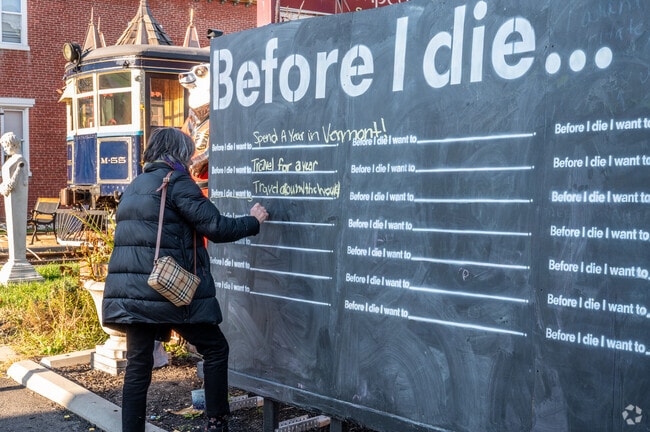 Before I die...
M-55
Before I die I want to Spend A Year in Vermont!
Before I die I want to Travel for a year
Before I die I want to Travel around the World
Before I die I want to
Before I die I want to
I want to
Before I die I want to
Before I die I want to
Before I die I want to
Before I die I want to
Before I die I want to
Before I die I want to
Before I die I want to
Before I die I want to
Before I die I want to
Before I die I want to
Before I die I want to
Before I die I want to
Before I die I want to
Before I die I want to